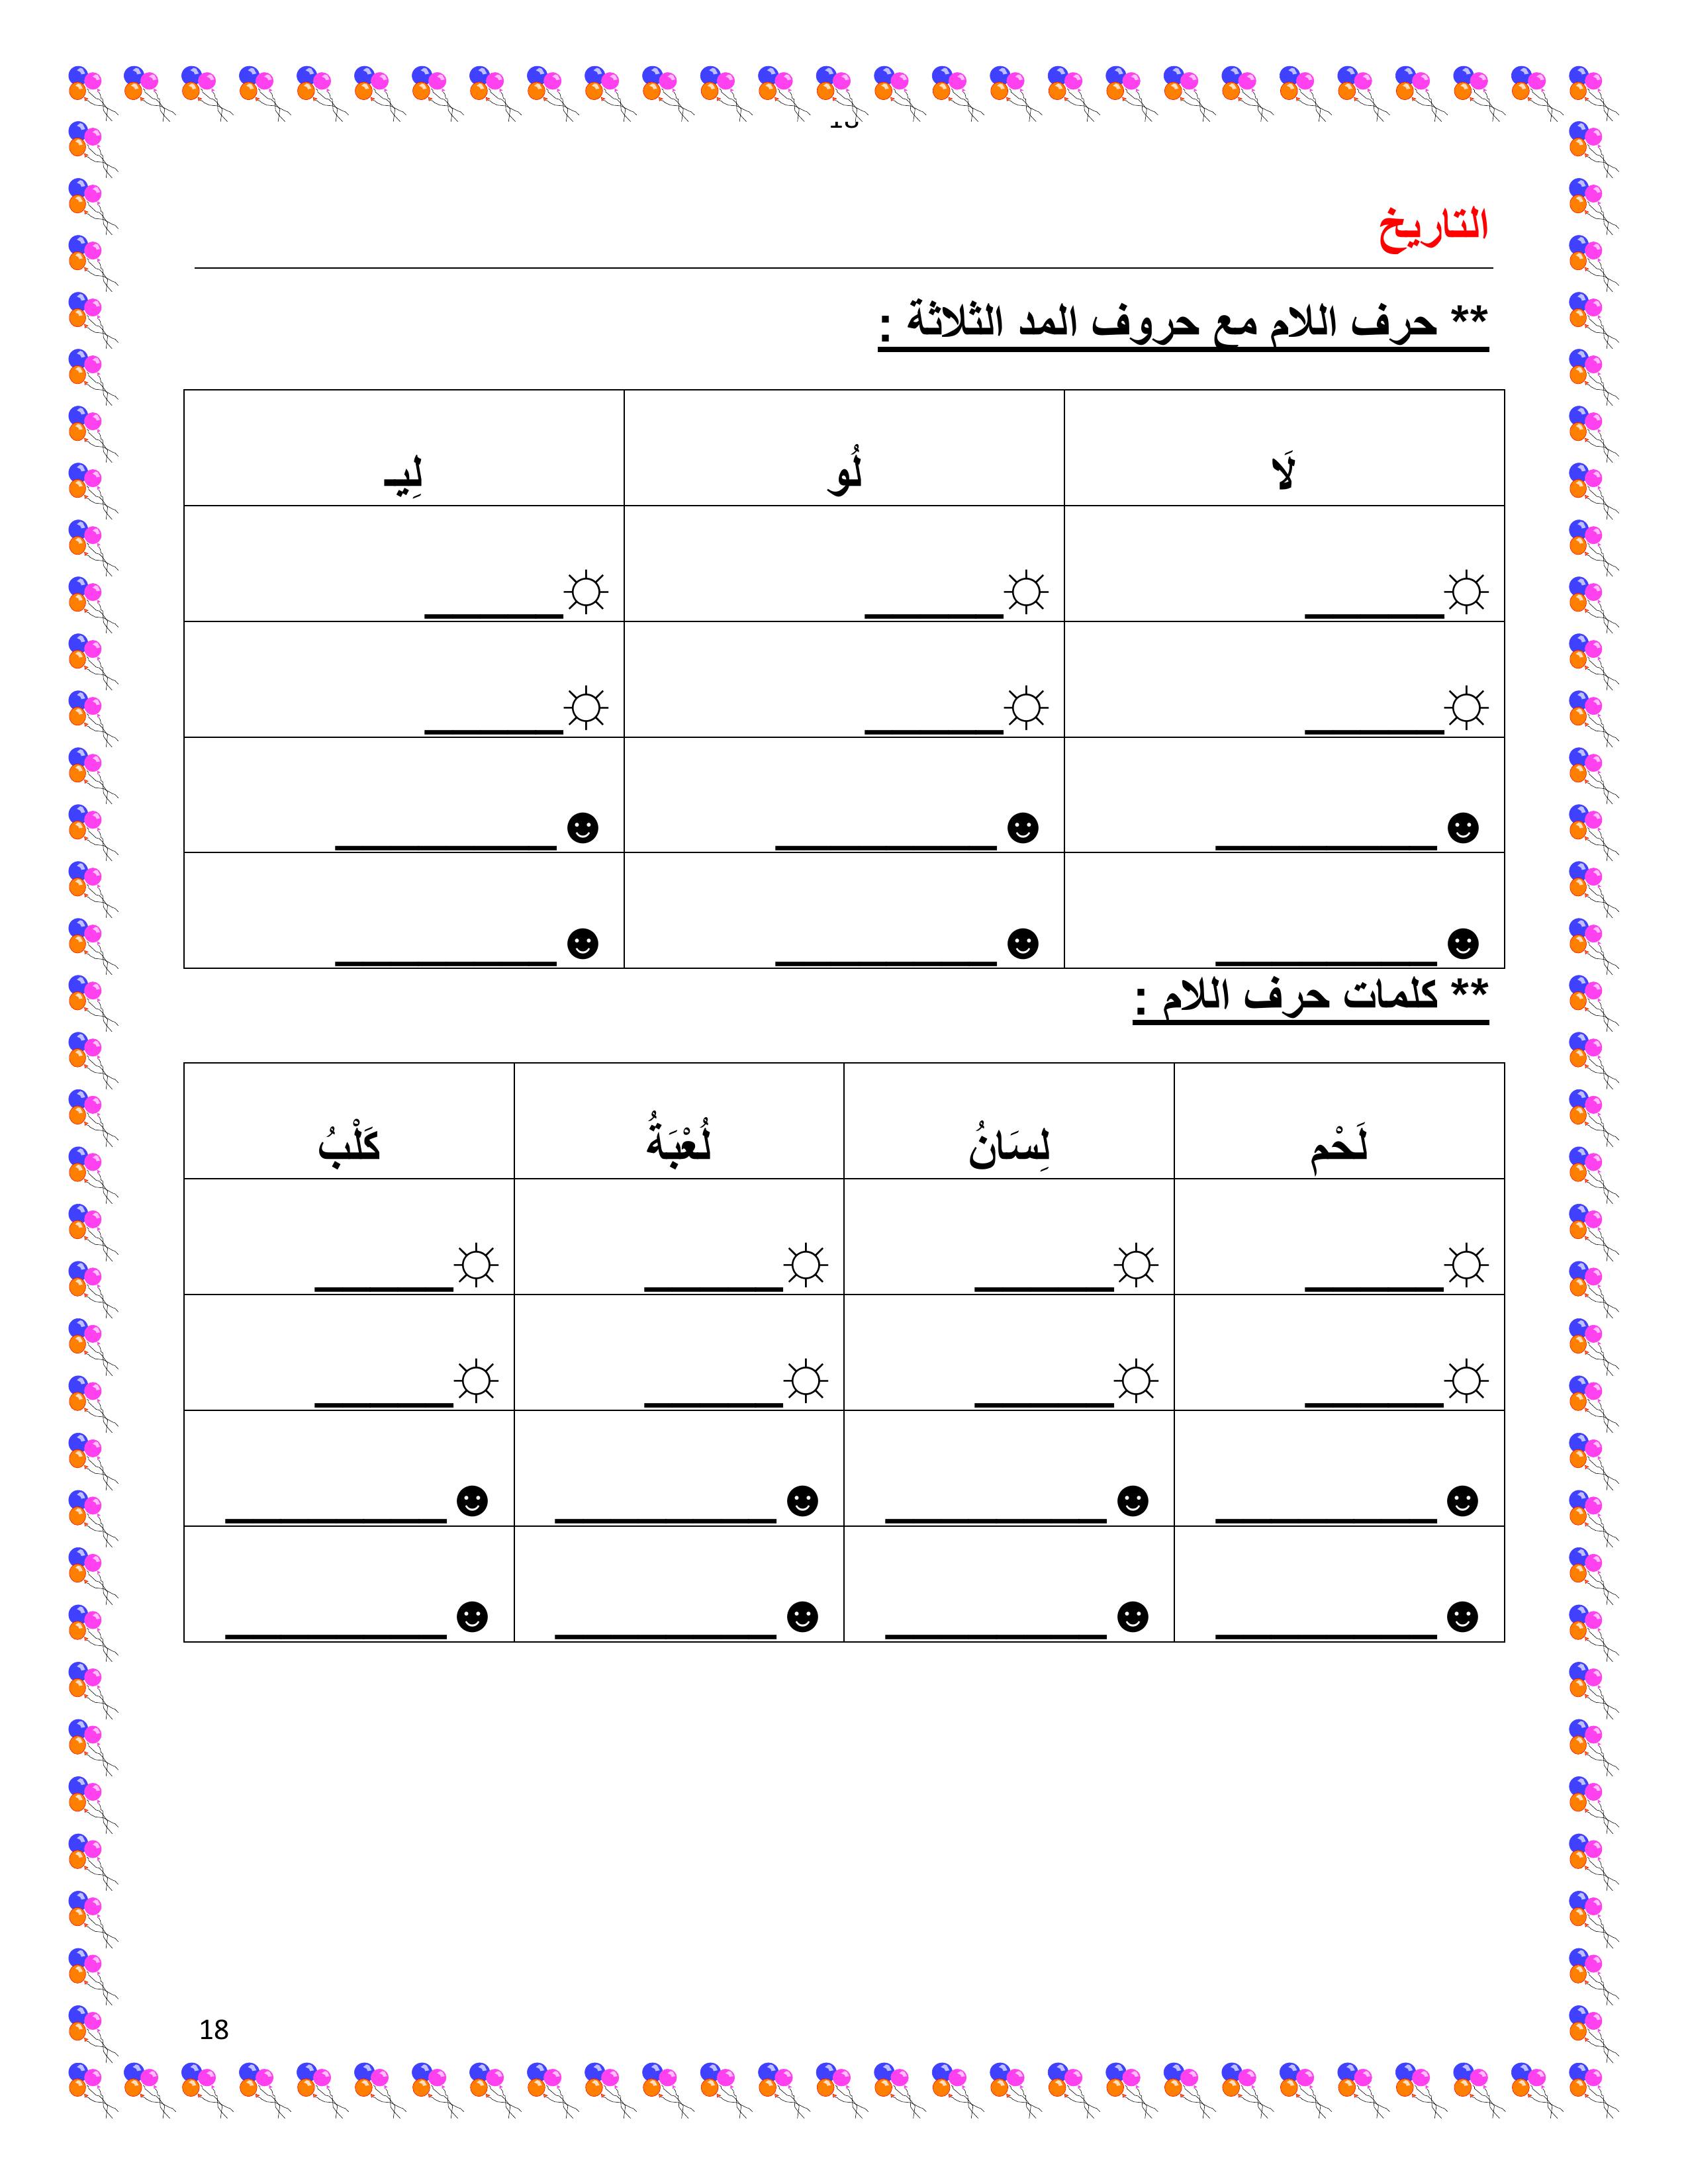 التاريخ
** حرف اللام مع حروف المد الثلاثة :
لَا لُو لِيـ
☼______ ☼______ ☼______
☼______ ☼______ ☼______
☻________ ☻________ ☻________
☻________ ☻________ ☻________
** كلمات حرف اللام :
لَحْم لِسَانُ لُعْبَةُ كَلْبُ
☼______ ☼______ ☼______ ☼______
☼______ ☼______ ☼______ ☼______
☻________ ☻________ ☻________ ☻________
☻________ ☻________ ☻________ ☻________
18